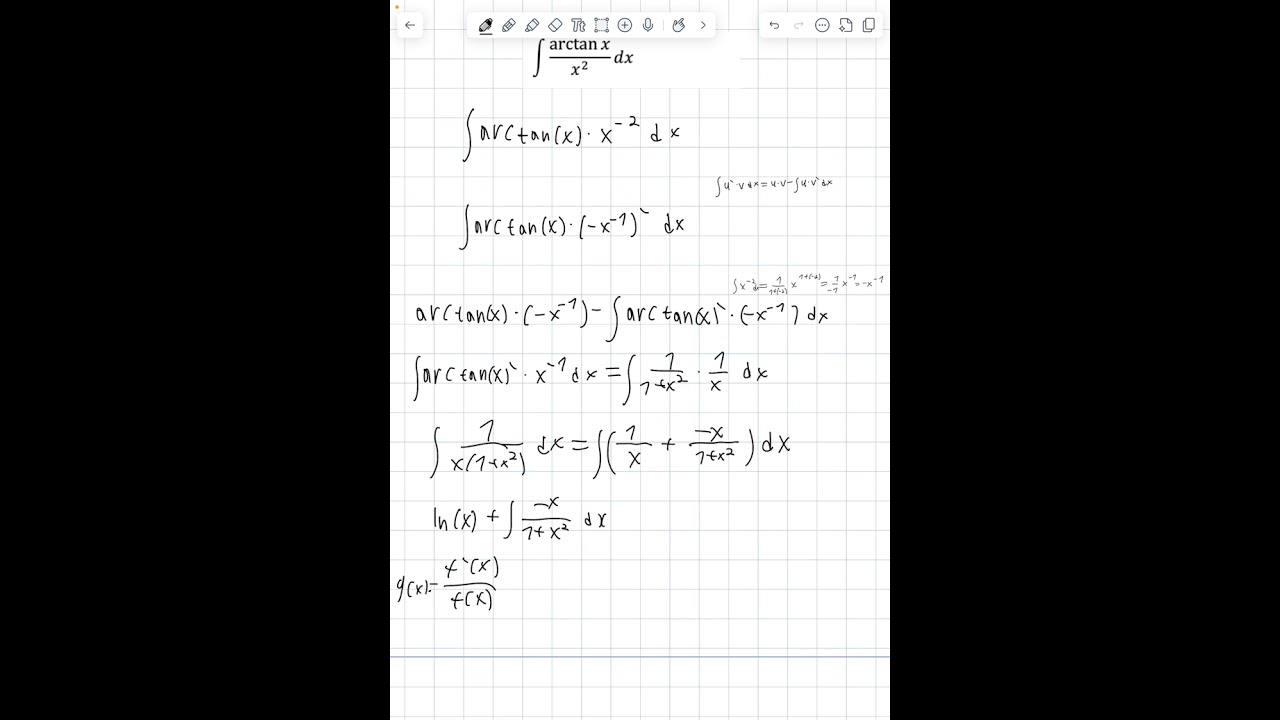 Tt
∫ arctan x / x² dx
∫ arctan(x) · x⁻² dx
∫ u` · v dx = u · v − ∫ u · v` dx
∫ arctan(x) · (−x⁻¹)` dx
∫ x⁻² dx = 1/(1+(−2)) x¹⁺⁽⁻²⁾ = 1/−1 x⁻¹ = −x⁻¹
arctan(x) · (−x⁻¹) − ∫ arctan(x)` · (−x⁻¹) dx
∫ arctan(x)` · x⁻¹ dx = ∫ 1/(1+x²) · 1/x dx
∫ 1/(x(1+x²)) dx = ∫ (1/x + −x/(1+x²)) dx
ln(x) + ∫ −x/(1+x²) dx
g(x) = f`(x)/f(x)